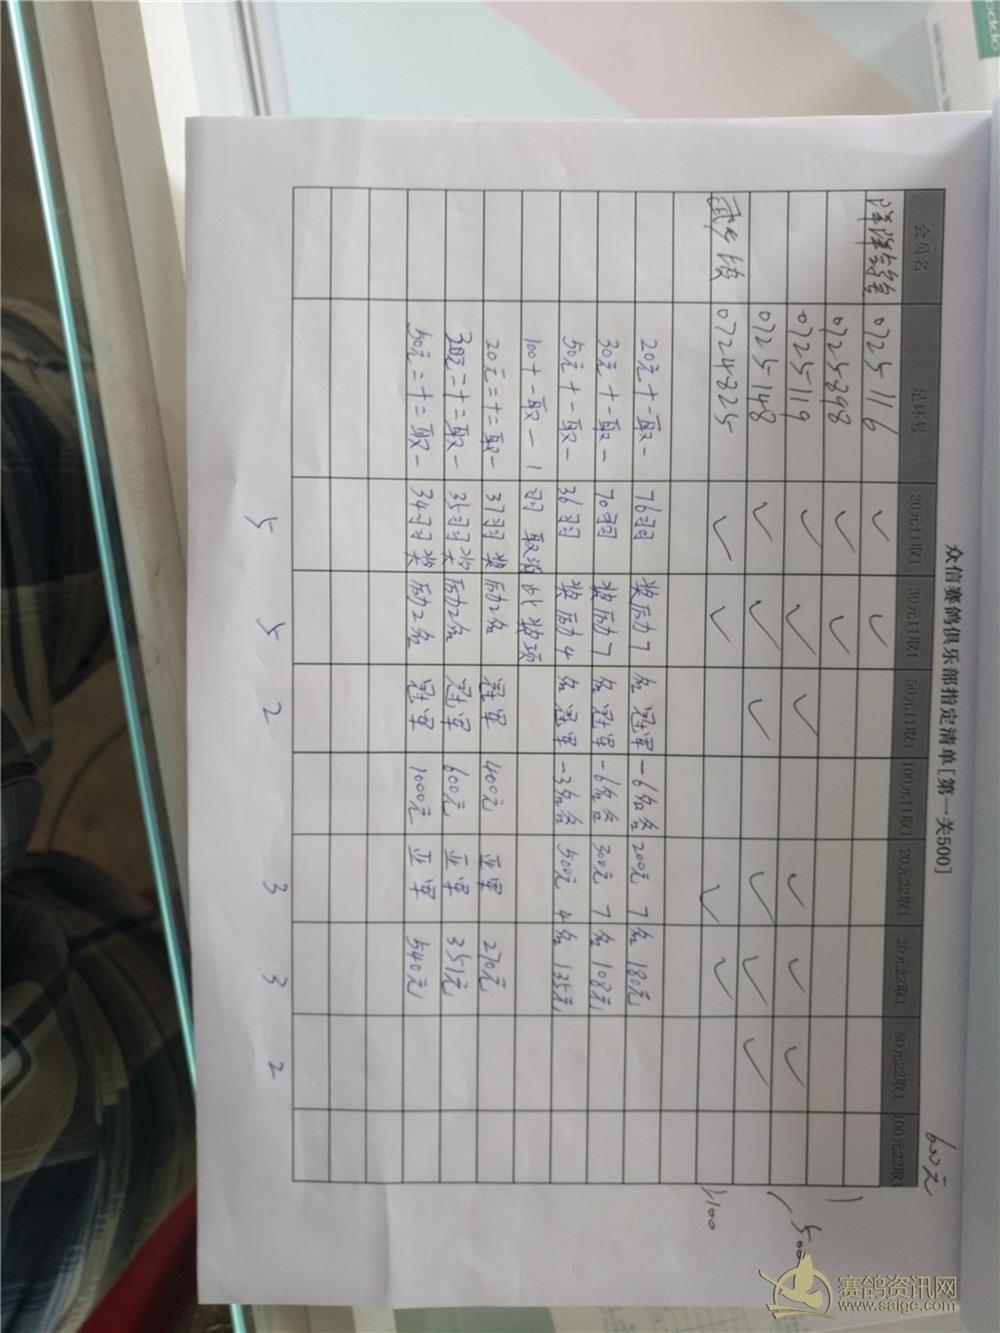 众信赛鸽俱乐部指定清单[第一关500]
600元
会员名 足环号 20元11取1 30元11取1 50元11取1 100元11取1 20元22取1 30元22取1 50元22取1 100元22取1
0725116 ✓ ✓
0725898 ✓ ✓
0725119 ✓ ✓ ✓ ✓ ✓ ✓
500
0725148 ✓ ✓ ✓ ✓ ✓ ✓
0724825 ✓ ✓ ✓ ✓
100
20元十一取一 76羽 奖励7名 冠军-6名各200元 7名180元
30元十一取一 70羽 奖励7名 冠军-6名各300元 7名108元
50元十一取一 36羽 奖励4名 冠军-3名各500元 4名135元
100十一取一 1羽 取消此奖项
20元二十二取一 37羽 奖励2名 冠军 400元 亚军 270元
30元二十二取一 35羽 奖励2名 冠军 600元 亚军 351元
50元二十二取一 34羽 奖励2名 冠军 1000元 亚军 540元
5 5 2 3 3 2
赛鸽资讯网
www.saigc.com
oppo